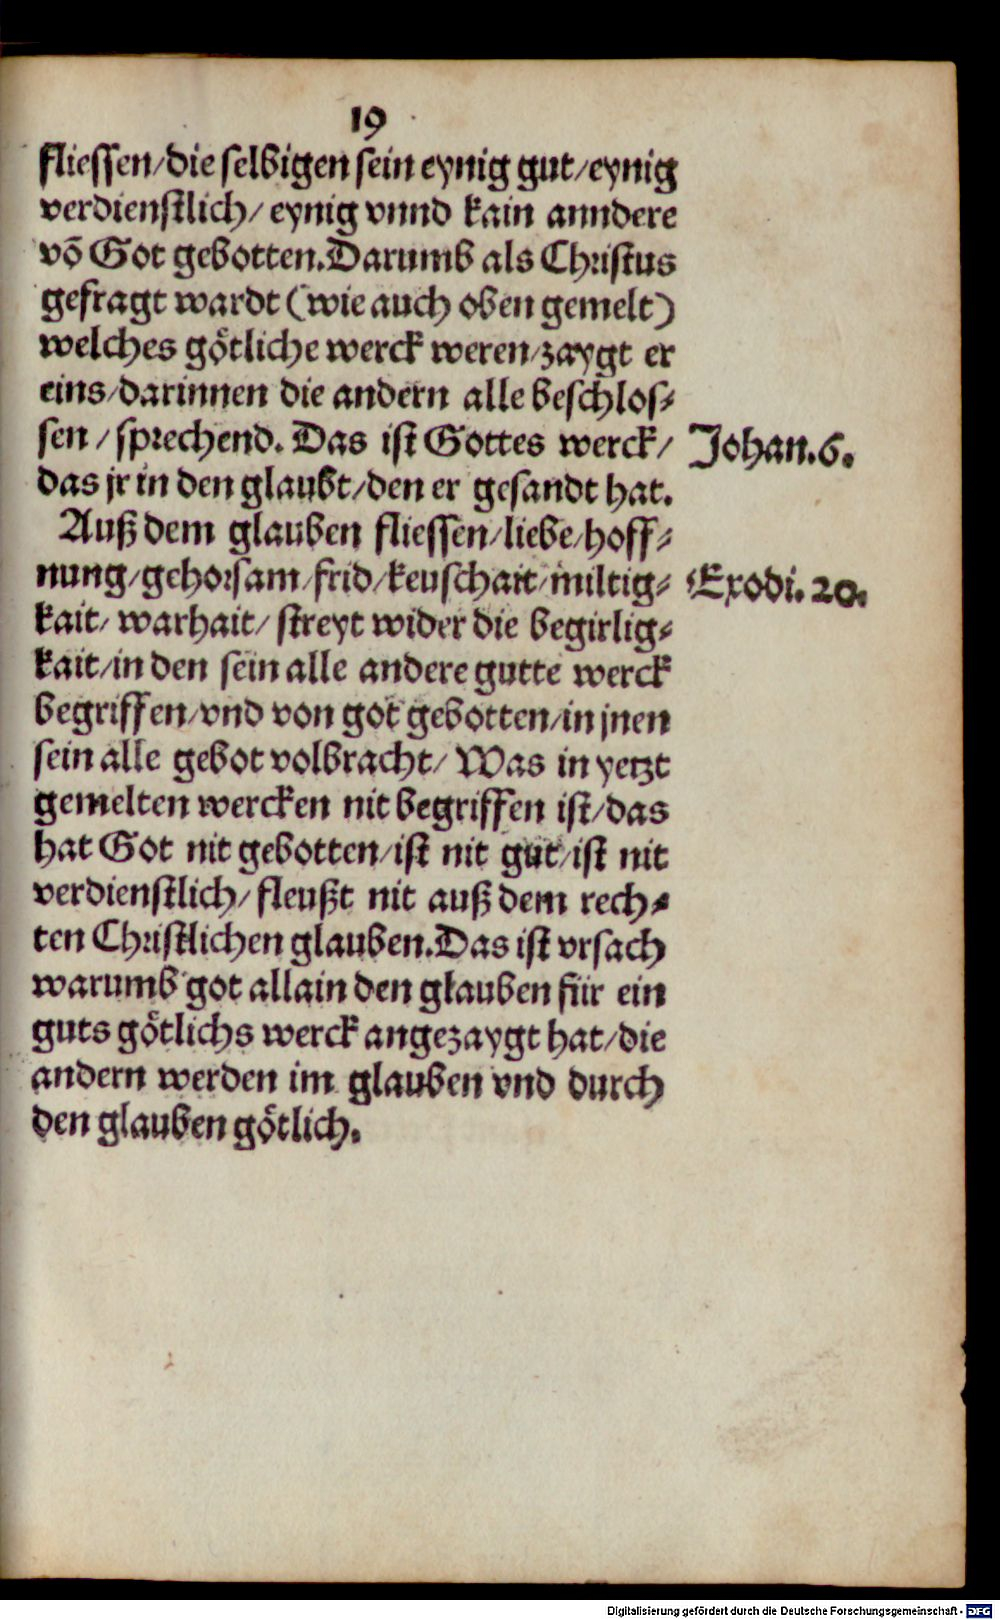 19
fliessen/die selbigen sein eynig gut/eynig
verdienstlich/ eynig vnnd kain anndere
võ Got gebotten.Darumb als Christus
gefragt wardt (wie auch oben gemelt)
welches götliche werck weren/zaygt er
eins/darinnen die andern alle beschlos⸗
sen / sprechend. Das ist Gottes werck/
Johan.6.
das jr in den glaubt/den er gesandt hat.
Auß dem glauben fliessen/liebe/hoff⸗
nung/gehorsam/frid/keuschait/miltig⸗
Exodi.20.
kait/ warhait/ streyt wider die begirlig⸗
kait/in den sein alle andere gutte werck
begriffen/vnd von got gebotten/in jnen
sein alle gebot volbracht/ Was in yetzt
gemelten wercken nit begriffen ist/das
hat Got nit gebotten/ist nit gut/ist nit
verdienstlich/ fleußt nit auß dem rech⸗
ten Christlichen glauben.Das ist vrsach
warumb got allain den glauben für ein
guts götlichs werck angezaygt hat/die
andern werden im glauben vnd durch
den glauben götlich.
Digitalisierung gefördert durch die Deutsche Forschungsgemeinschaft - DFG